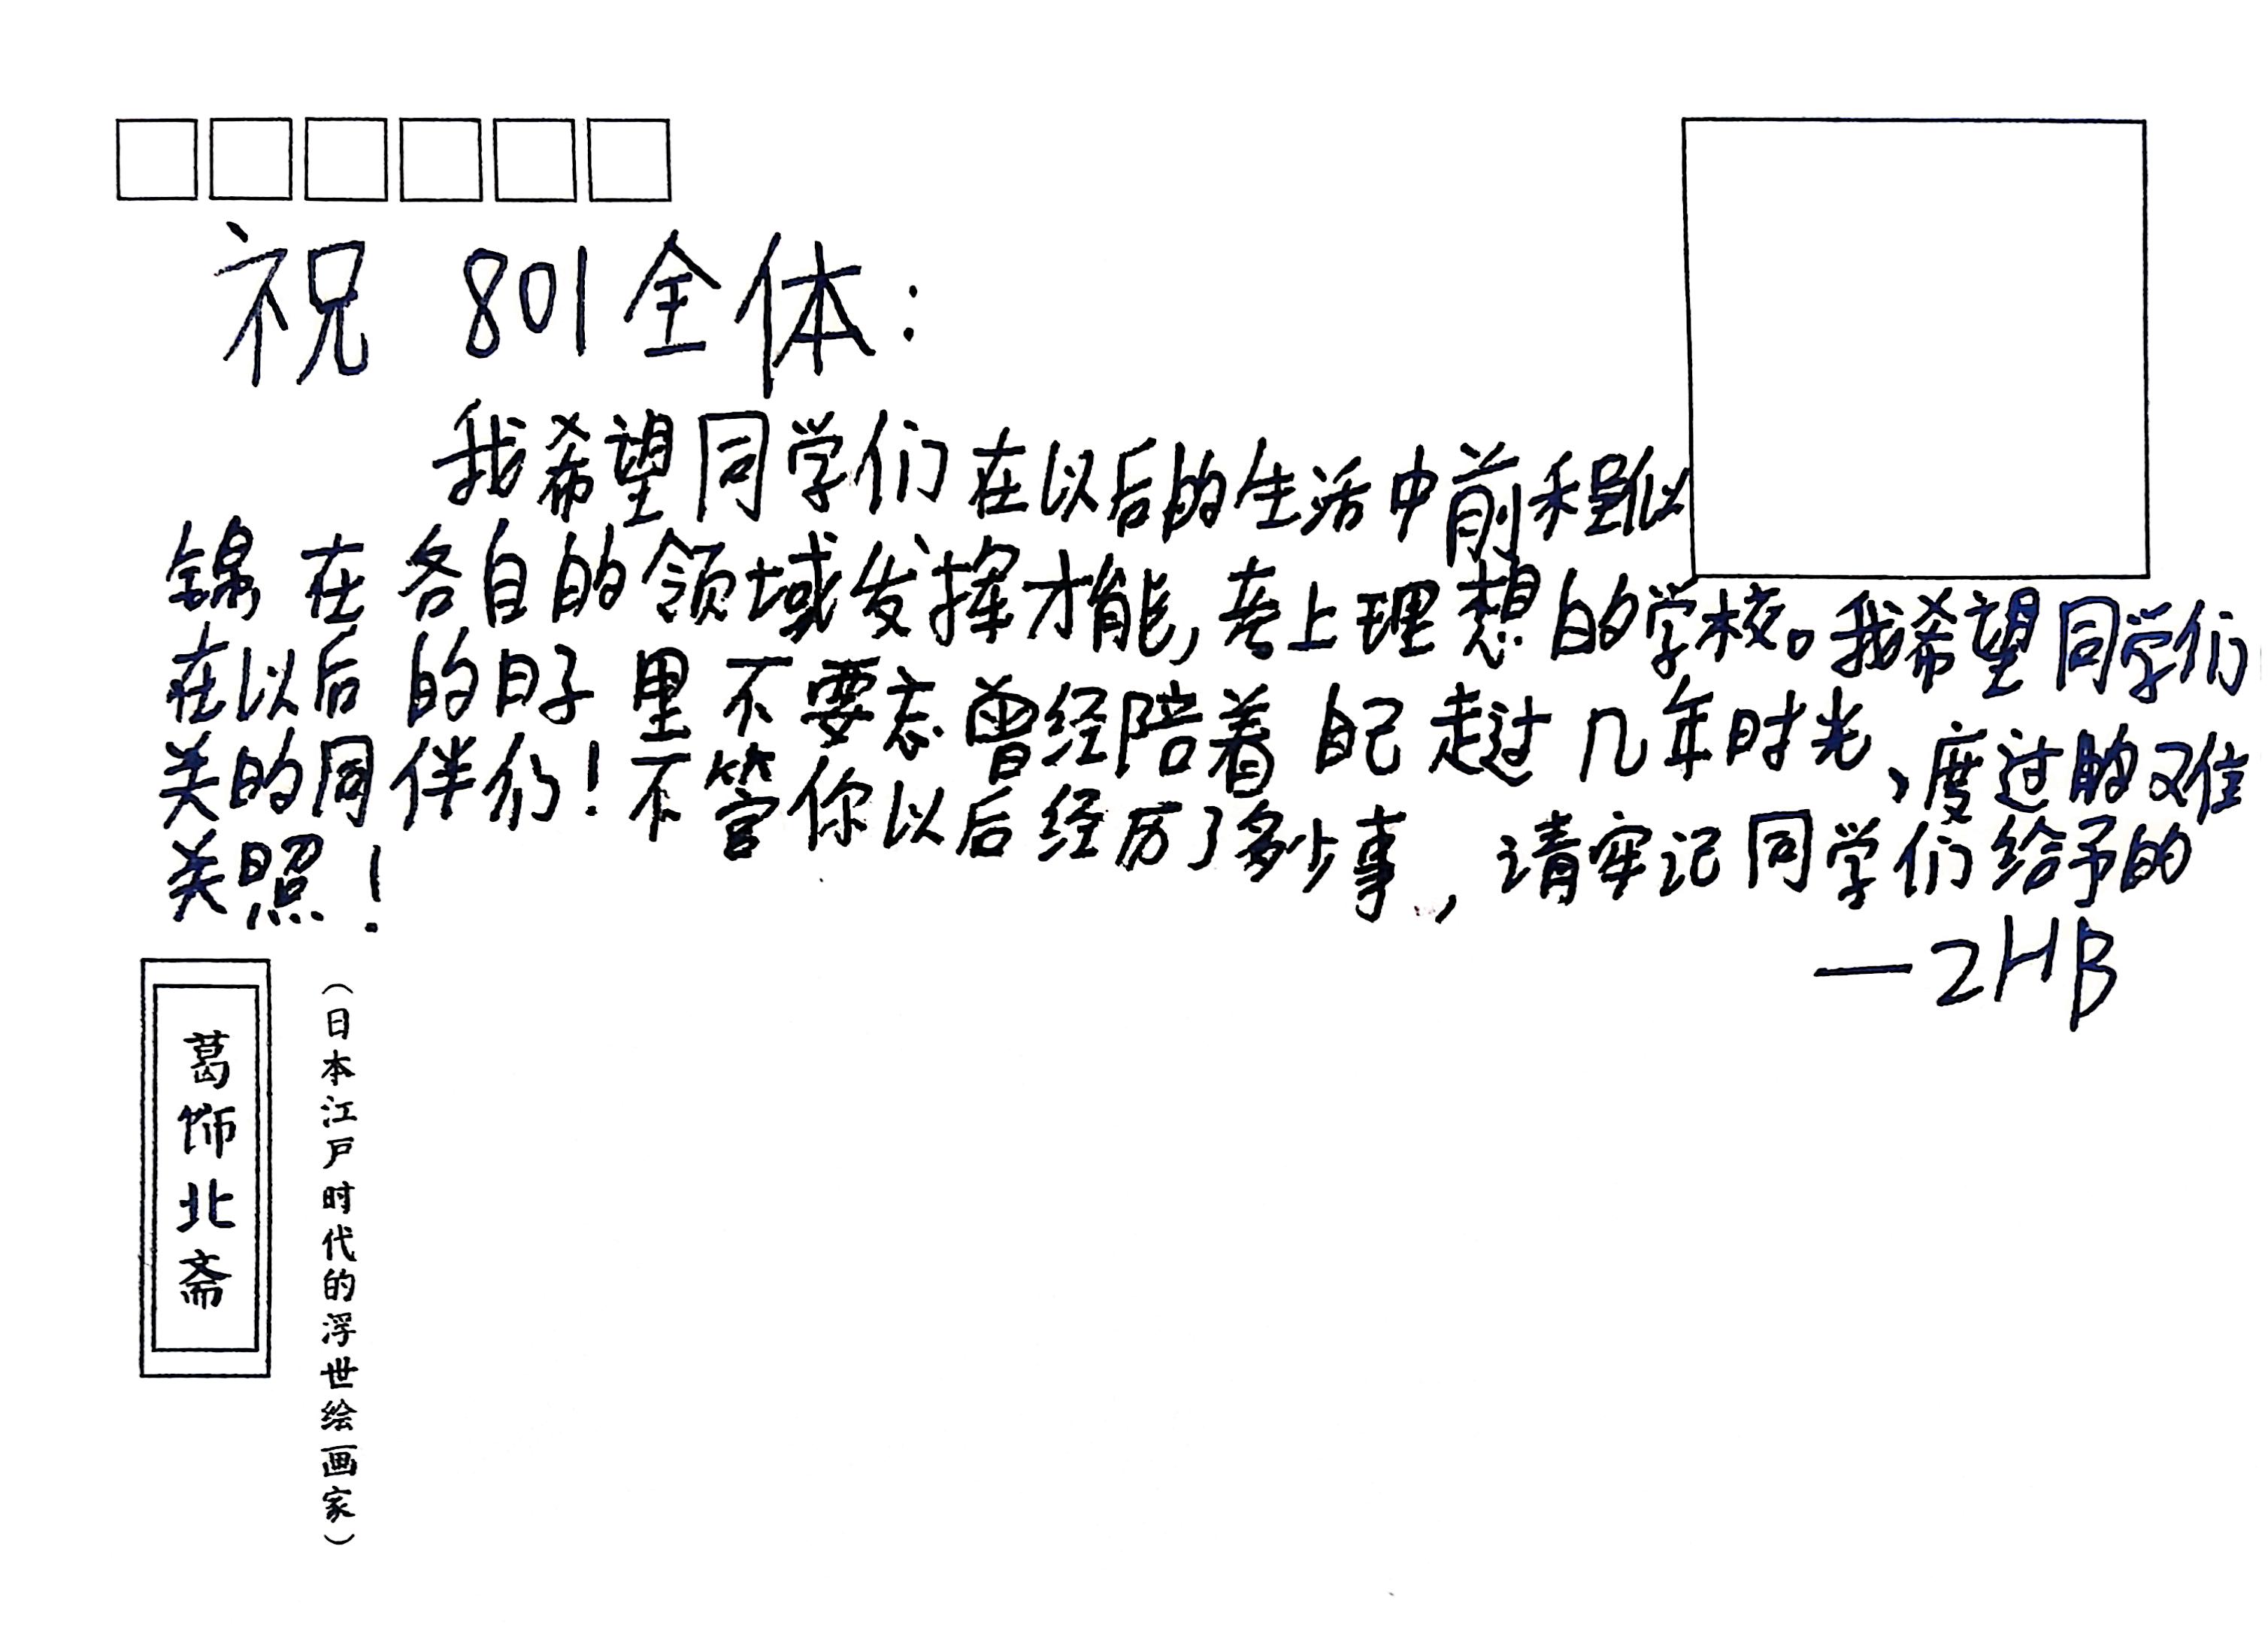 祝 801全体：
我希望同学们在以后的生活中前程似
锦在各自的领域发挥才能,考上理想的学校。我希望同学们
在以后的日子里不要忘曾经陪着自己走过几年时光、度过的难
关的同伴们!不管你以后经历了多少事,请牢记同学们给予的
关照!
—2HB
葛饰北斋
（日本江户时代的浮世绘画家）